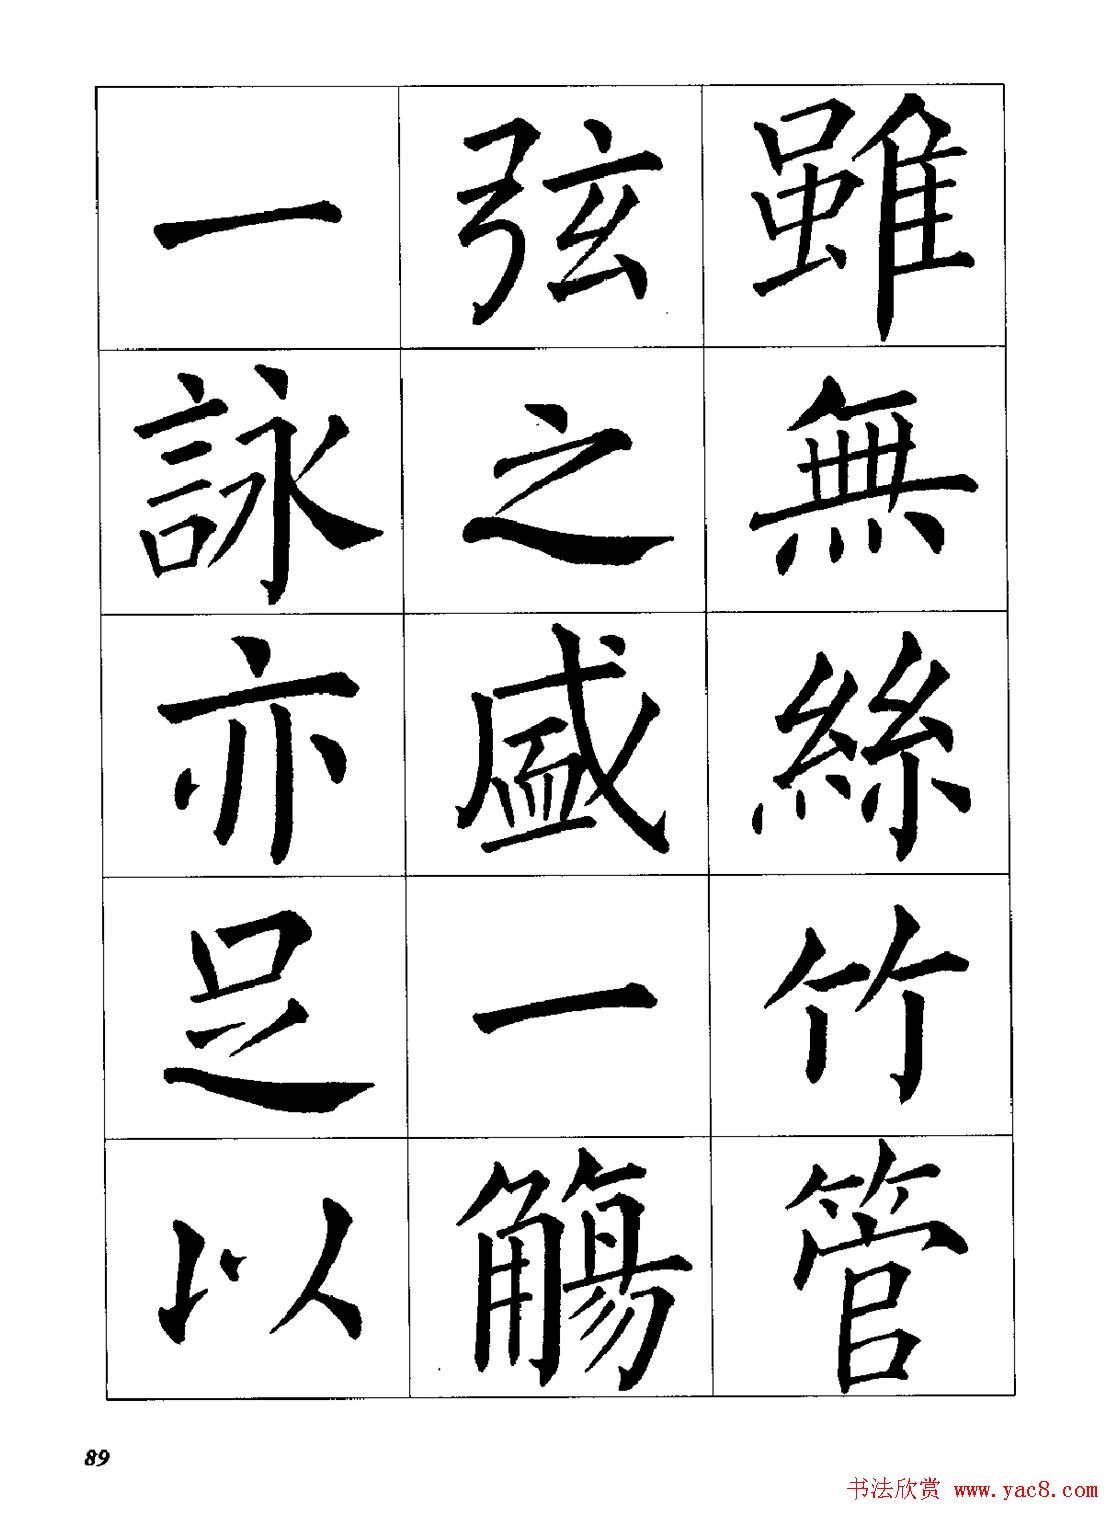 雖無絲竹管
弦之盛一觴
一詠亦足以
89
书法欣赏 www.yac8.com